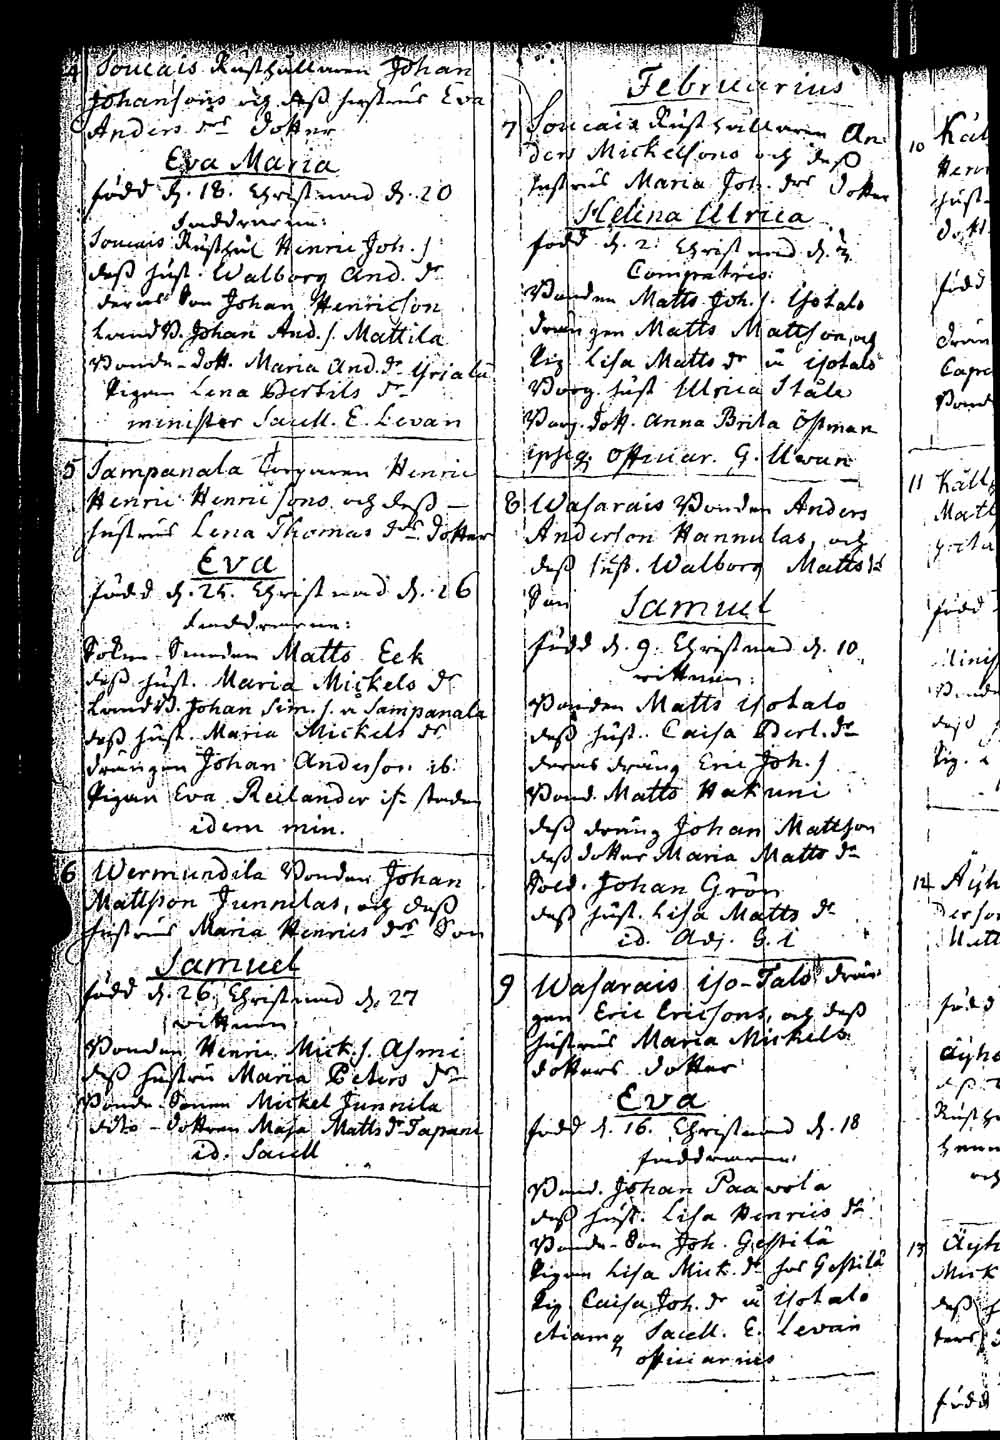 4 Soucais Rusthållaren Johan
Johansons och deß hustrus Eva
Anders drs Dotter
Eva Maria
född d. 18. Christnad d. 20
faddrarne:
Soucais Rusthål Henric Joh. s
deß hust. Walborg And. dr
deras Son Johan Henricson
LandB. Johan And. s. Mattila
Bonde-Dott. Maria And. dr Yrjälä
Pigan Lena Bertils dr
minister Sacell. E. Levan
5 Sampanala Torparen Henric
Henric Henricsons och deß
hustrus Lena Thomas drs Dotter
Eva
född d. 25. Christnad d. 26
faddrarne:
Sokne-Smeden Matts Eek
deß hust. Maria Mickels dr
LandB. Johan Sim. s. å Sampanala
deß hust. Maria Mickels dr
drängen Johan Anderson ib.
Pigan Eva Reilander
idem min.
6 Wermundila Bonden Johan
Mattsson Junnilas, och deß
hustrus Maria Henrics drs Son
Samuel
född d. 26. Christnad d. 27
wittnen:
Bonden Henric Mick. s. Asmi
deß hustru Maria Peters dr
Bonde-Sonen Mickel Junnila
dito-Dottren Maja Matts dr Tapani
id. Sacell
Februarius
7 Soucais Rusthållaren An-
ders Mickelsons och deß
hustrus Maria Joh. drs Dotter
Helena Ulrica
född d. 2. Christnad d. 3
Compatres:
Bonden Matts Joh. s. Isotalo
Drängen Matts Mattson, och
Pig. Lisa Matts dr å Isotalo
Borg. hust Ulrica Ståle
Borg. Dott. Anna Brita Östman
ipseq. officiar. G. Levan
8 Wasarais Bonden Anders
Anderson Hannulas, och
deß hust. Walborg Matts dr
Son
Samuel
född d. 9. Christnad d. 10
wittnen:
Bonden Matts Isotalo
deß hust. Caisa Bert. dr
deras dräng Eric Joh. s
Bond. Matts Hakuni
deß dräng Johan Mattson
deß dotter Maria Matts dr
Sold. Johan Grön
deß hust. Lisa Matts dr
id. Adj. G. L
9 Wasarais Iso-Talo drän-
gen Eric Ericsons, och deß
hustrus Maria Mickels
dotters dotter
Eva
född d. 16. Christnad d. 18
faddrarne:
Bond. Johan Paavola
deß hust. Lisa Henrics dr
Bonde-Son Joh. Gestilä
Pigan Lisa Mick. dr hos Gestilä
Pig. Caisa Joh. dr å Isotalo
etiamq Sacell. E. Levan
officiarius
10 Käl
Henr
hust
dott
född
drän
Capr
Bond
11 Käll
Matt
född
Bond
deß
Pig.
12 Äyh
derson
Matt
född
Äyho
Rusth
och
13 Äyh
Mick
deß h
ders
född